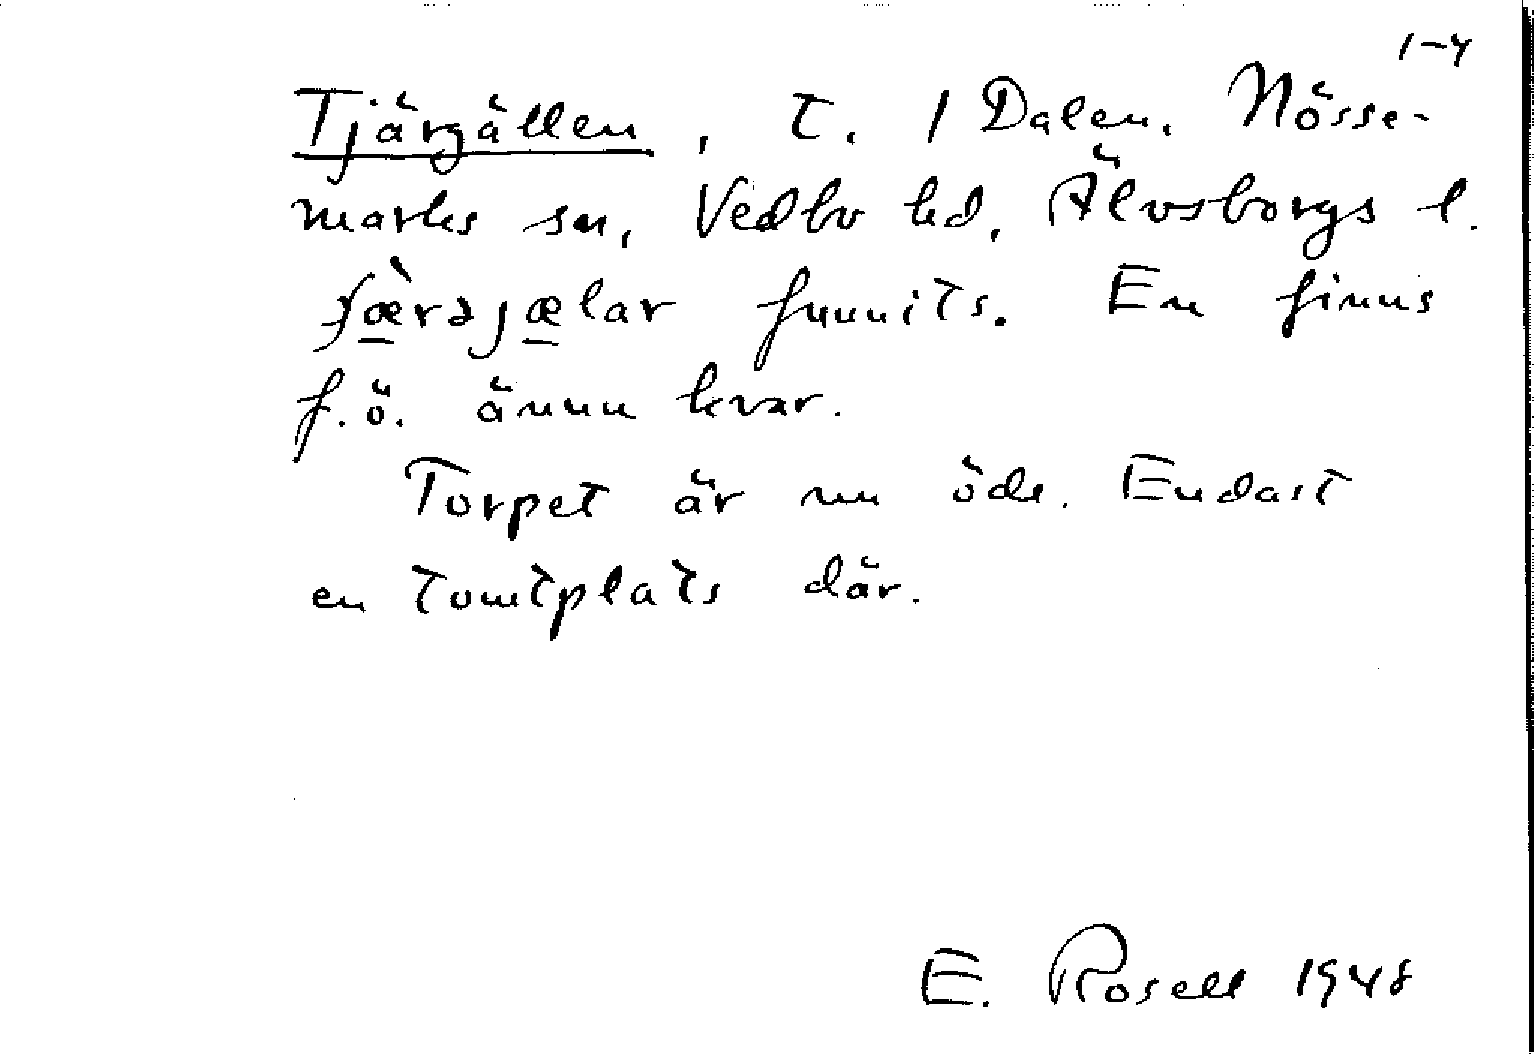 1-4
Tjärgällen, t. / Dalen. Nösse-
marks sn, Vedbo hd, Älvsborgs l.
ʃæ̀rəjælar funnits. En finns
f.ö. ännu kvar.
Torpet är nu öde. Endast
en tomtplats där.
E. Rosell 1948